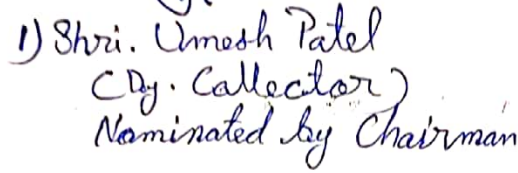 1) Shri. Umesh Patel
(Dy. Callector)
Nominated by Chairman